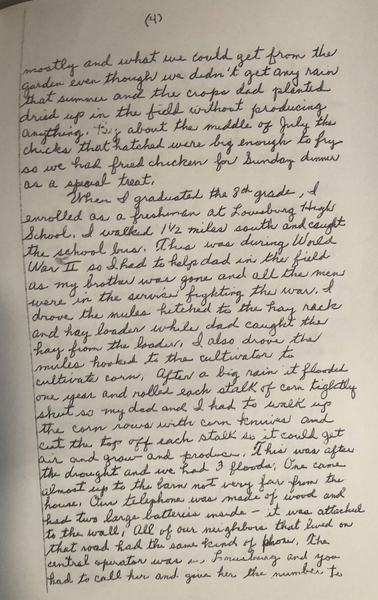 (4)
mostly and what we could get from the
garden even though we didn't get any rain
that summer and the crops dad planted
dried up in the field without producing
anything. By about the middle of July the
chicks that hatched were big enough to fry
so we had fried chicken for Sunday dinner
as a special treat.
When I graduated the 8th grade, I
enrolled as a freshman at Louisburg High
School. I walked 1 1/2 miles south and caught
the school bus. This was during World
War II so I had to help dad in the field
as my brother was gone and all the men
were in the service fighting the war. I
drove the mules hitched to the hay rack
and hay loader while dad caught the
hay from the loader. I also drove the
mules hooked to the cultivator to
cultivate corn. After a big rain it flooded
one year and rolled each stalk of corn tightly
shut so my dad and I had to walk up
the corn rows with corn knives and
cut the top off each stalk so it could get
air and grow and produce. This was after
the drought and we had 3 floods. One came
almost up to the barn not very far from the
house. Our telephone was made of wood and
had two large batteries inside - it was attached
to the wall. All of our neighbors that lived on
that road had the same kind of phone. The
central operator was in Louisburg and you
had to call her and give her the number to